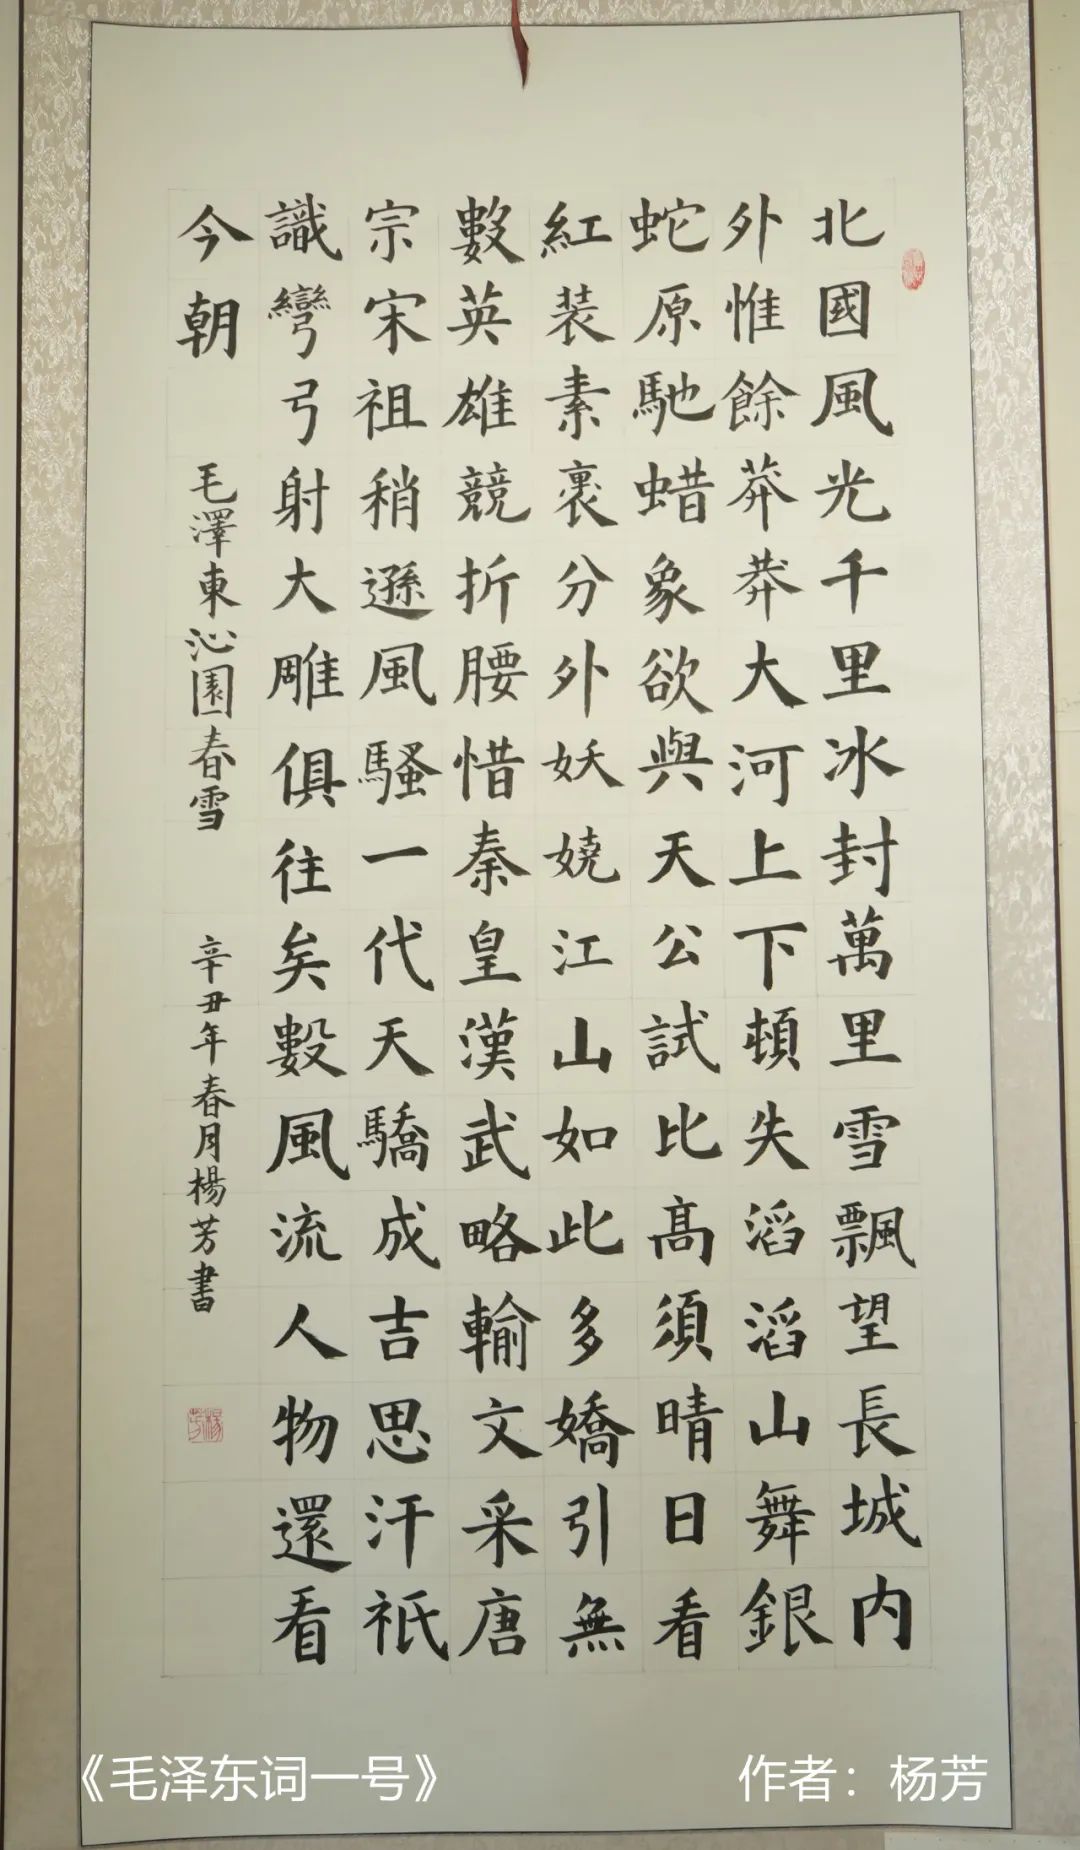 北國風光千里冰封萬里雪飄望長城内
外惟餘莽莽大河上下頓失滔滔山舞銀
蛇原馳蜡象欲與天公試比髙須晴日看
紅装素裹分外妖嬈江山如此多嬌引無
數英雄競折腰惜秦皇漢武略輸文采唐
宗宋祖稍遜風騷一代天驕成吉思汗祇
識彎弓射大雕俱往矣數風流人物還看
今朝
毛澤東沁園春雪 辛丑年春月楊芳書
《毛泽东词一号》
作者：杨芳